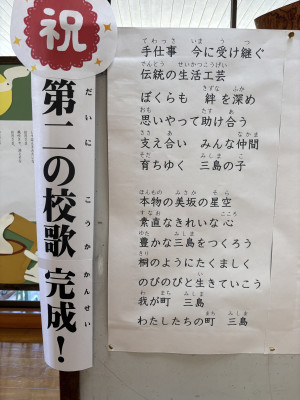 祝
第二の校歌 完成！
だいに こうか かんせい
てわざ いま う つ
手仕事 今に受け継ぐ
でんとう せいかつこうげい
伝統の生活工芸
きずな ふか
ぼくらも 絆を深め
おも たす あ
思いやって助け合う
ささ あ なかま
支え合い みんな仲間
そだ みしま こ
育ちゆく 三島の子
ほんもの みさか そら
本物の美坂の星空
すなお こころ
素直なきれいな心
ゆた みしま
豊かな三島をつくろう
きり
桐のようにたくましく
い
のびのびと生きていこう
わ まち みしま
我が町 三島
まち みしま
わたしたちの町 三島